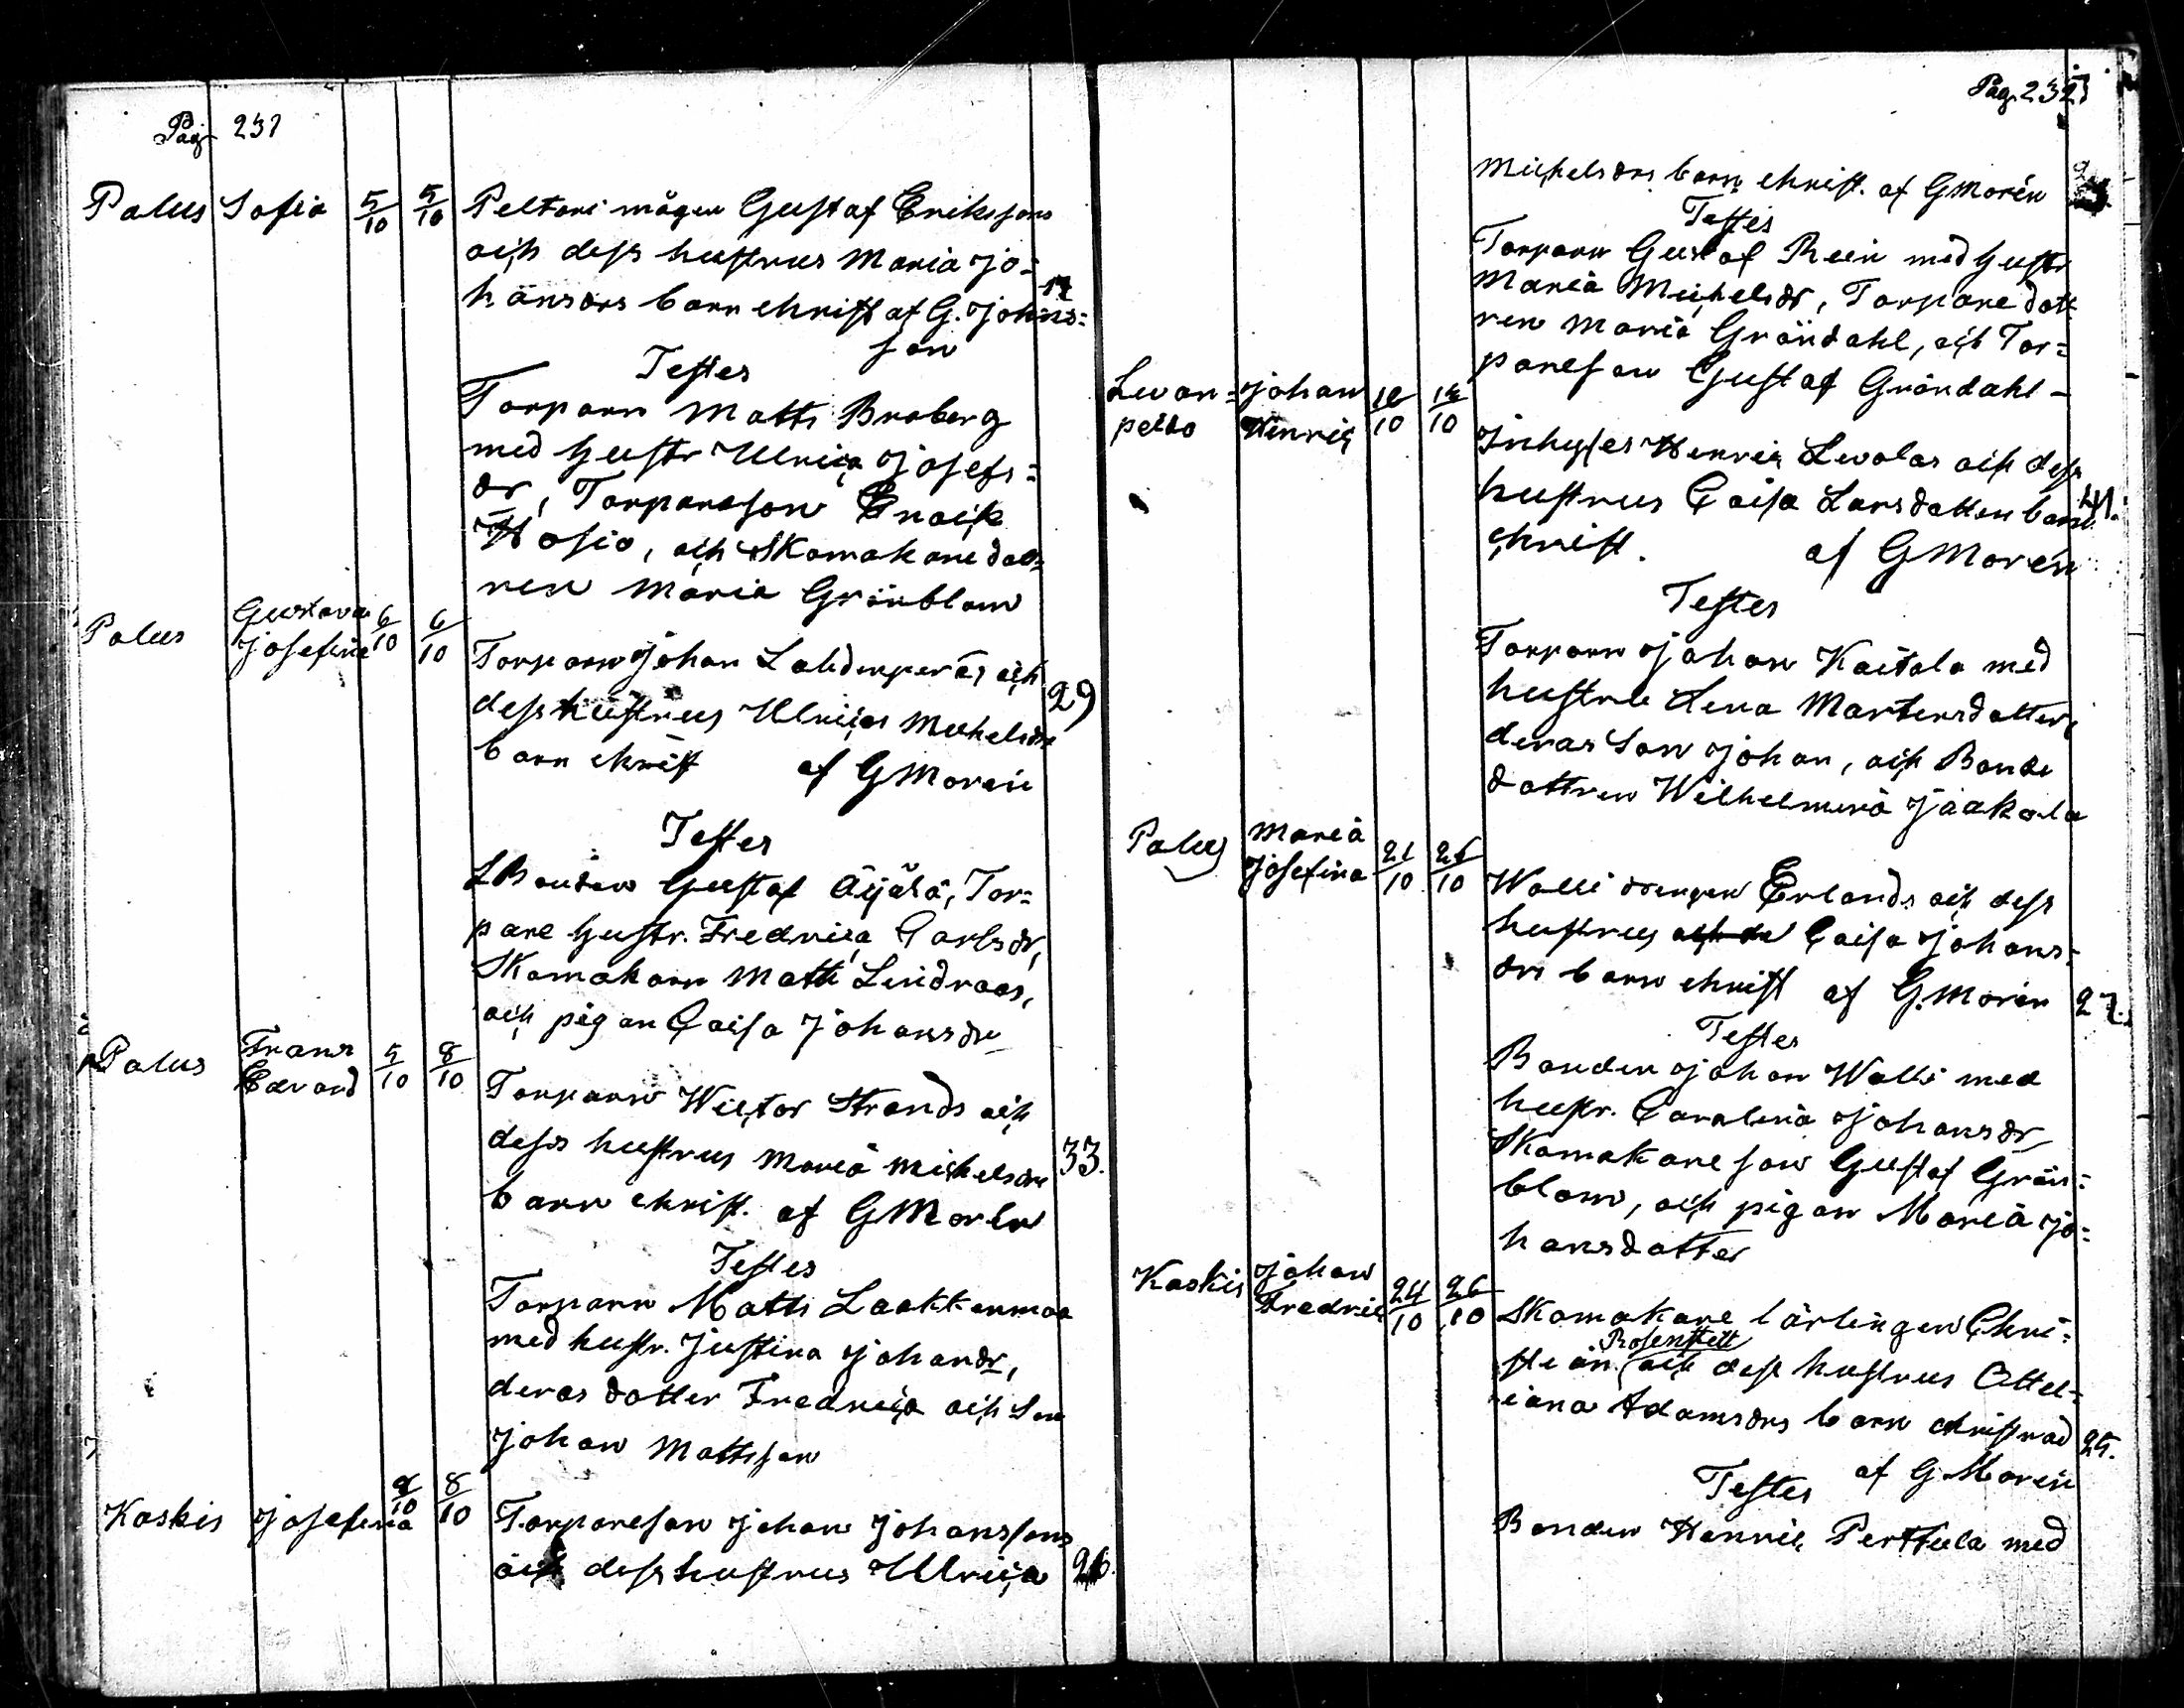 Pag 231
Palus Sofia 5/10 5/10 Peltari mågen Gustaf Erikssons
och dess hustrus Maria Jo=
hansdrs barn christ af G. Johns=
son
Testes
Torparn Matts Broberg
med hustr Ulrica Josefs=
dr, Torpareson Enoch
Hosio, och Skomakaredott
ren Maria Grönblom
Palus Gustava Josefina 6/10 6/10
Torparn Johan Lahdenperäs och 29
dess hustrus Ulricas Michelsdrs
barn christ af GMorén
Testes
LBonden Gustaf Äijälä, Tor=
pare hustr. Fredrica Carlsdr,
Skomakarn Matts Lindroos,
och pigan Caisa Johansdr
Palus Frans Edvard 5/10 8/10
Torparn Victor Strands och
dess hustrus Maria Michelsdrs 33.
barn christ. af GMorén
Testes
Torparn Matts Laakkonmaa
med hustr. Justina Johansdr,
deras dotter Fredrica och Son
Johan Mattsson
Kaskis Josefina 8/10 8/10 Torpareson Johan Johanssons
och dess hustrus Ulrica 26.
Pag. 232
Michelsdrs barn christ. af GMorén
Testes
Torparn Gustaf Rein med hustr
Maria Michelsdr, Torpare dott
ren Maria Gröndahl, och Tor=
pareson Gustaf Gröndahl -
Levan=pelto Johan Henric 10/10
Inhyses Henric Levolas och dess
hustrus Caisa Larsdotters barn 41.
christ. af GMorén
Testes
Torparn Johan Kaitala med
hustru Lena Martensdotter
deras Son Johan, och Bonde
dottren Wilhelmina Jaakola
Palus Maria Josefina 21/10 25/10
Walli drengen Erlands och dess
hustrus Caisa Johans=
drs barn christ af G.Morén 27.
Testes
Bonden Johan Walli med
hustr. Carolina Johansdr
Skomakareson Gustaf Grön=
blom, och pigan Maria Jo=
hansdotter
Kaskis Johan Fredric 24/10 26/10
Skomakare lärlingen Chri=
stian Rosenstett och dess hustrus Ottel=
iana Adamsdrs barn christnad 25.
af G Morén
Testes
Bonden Henric Perttula med